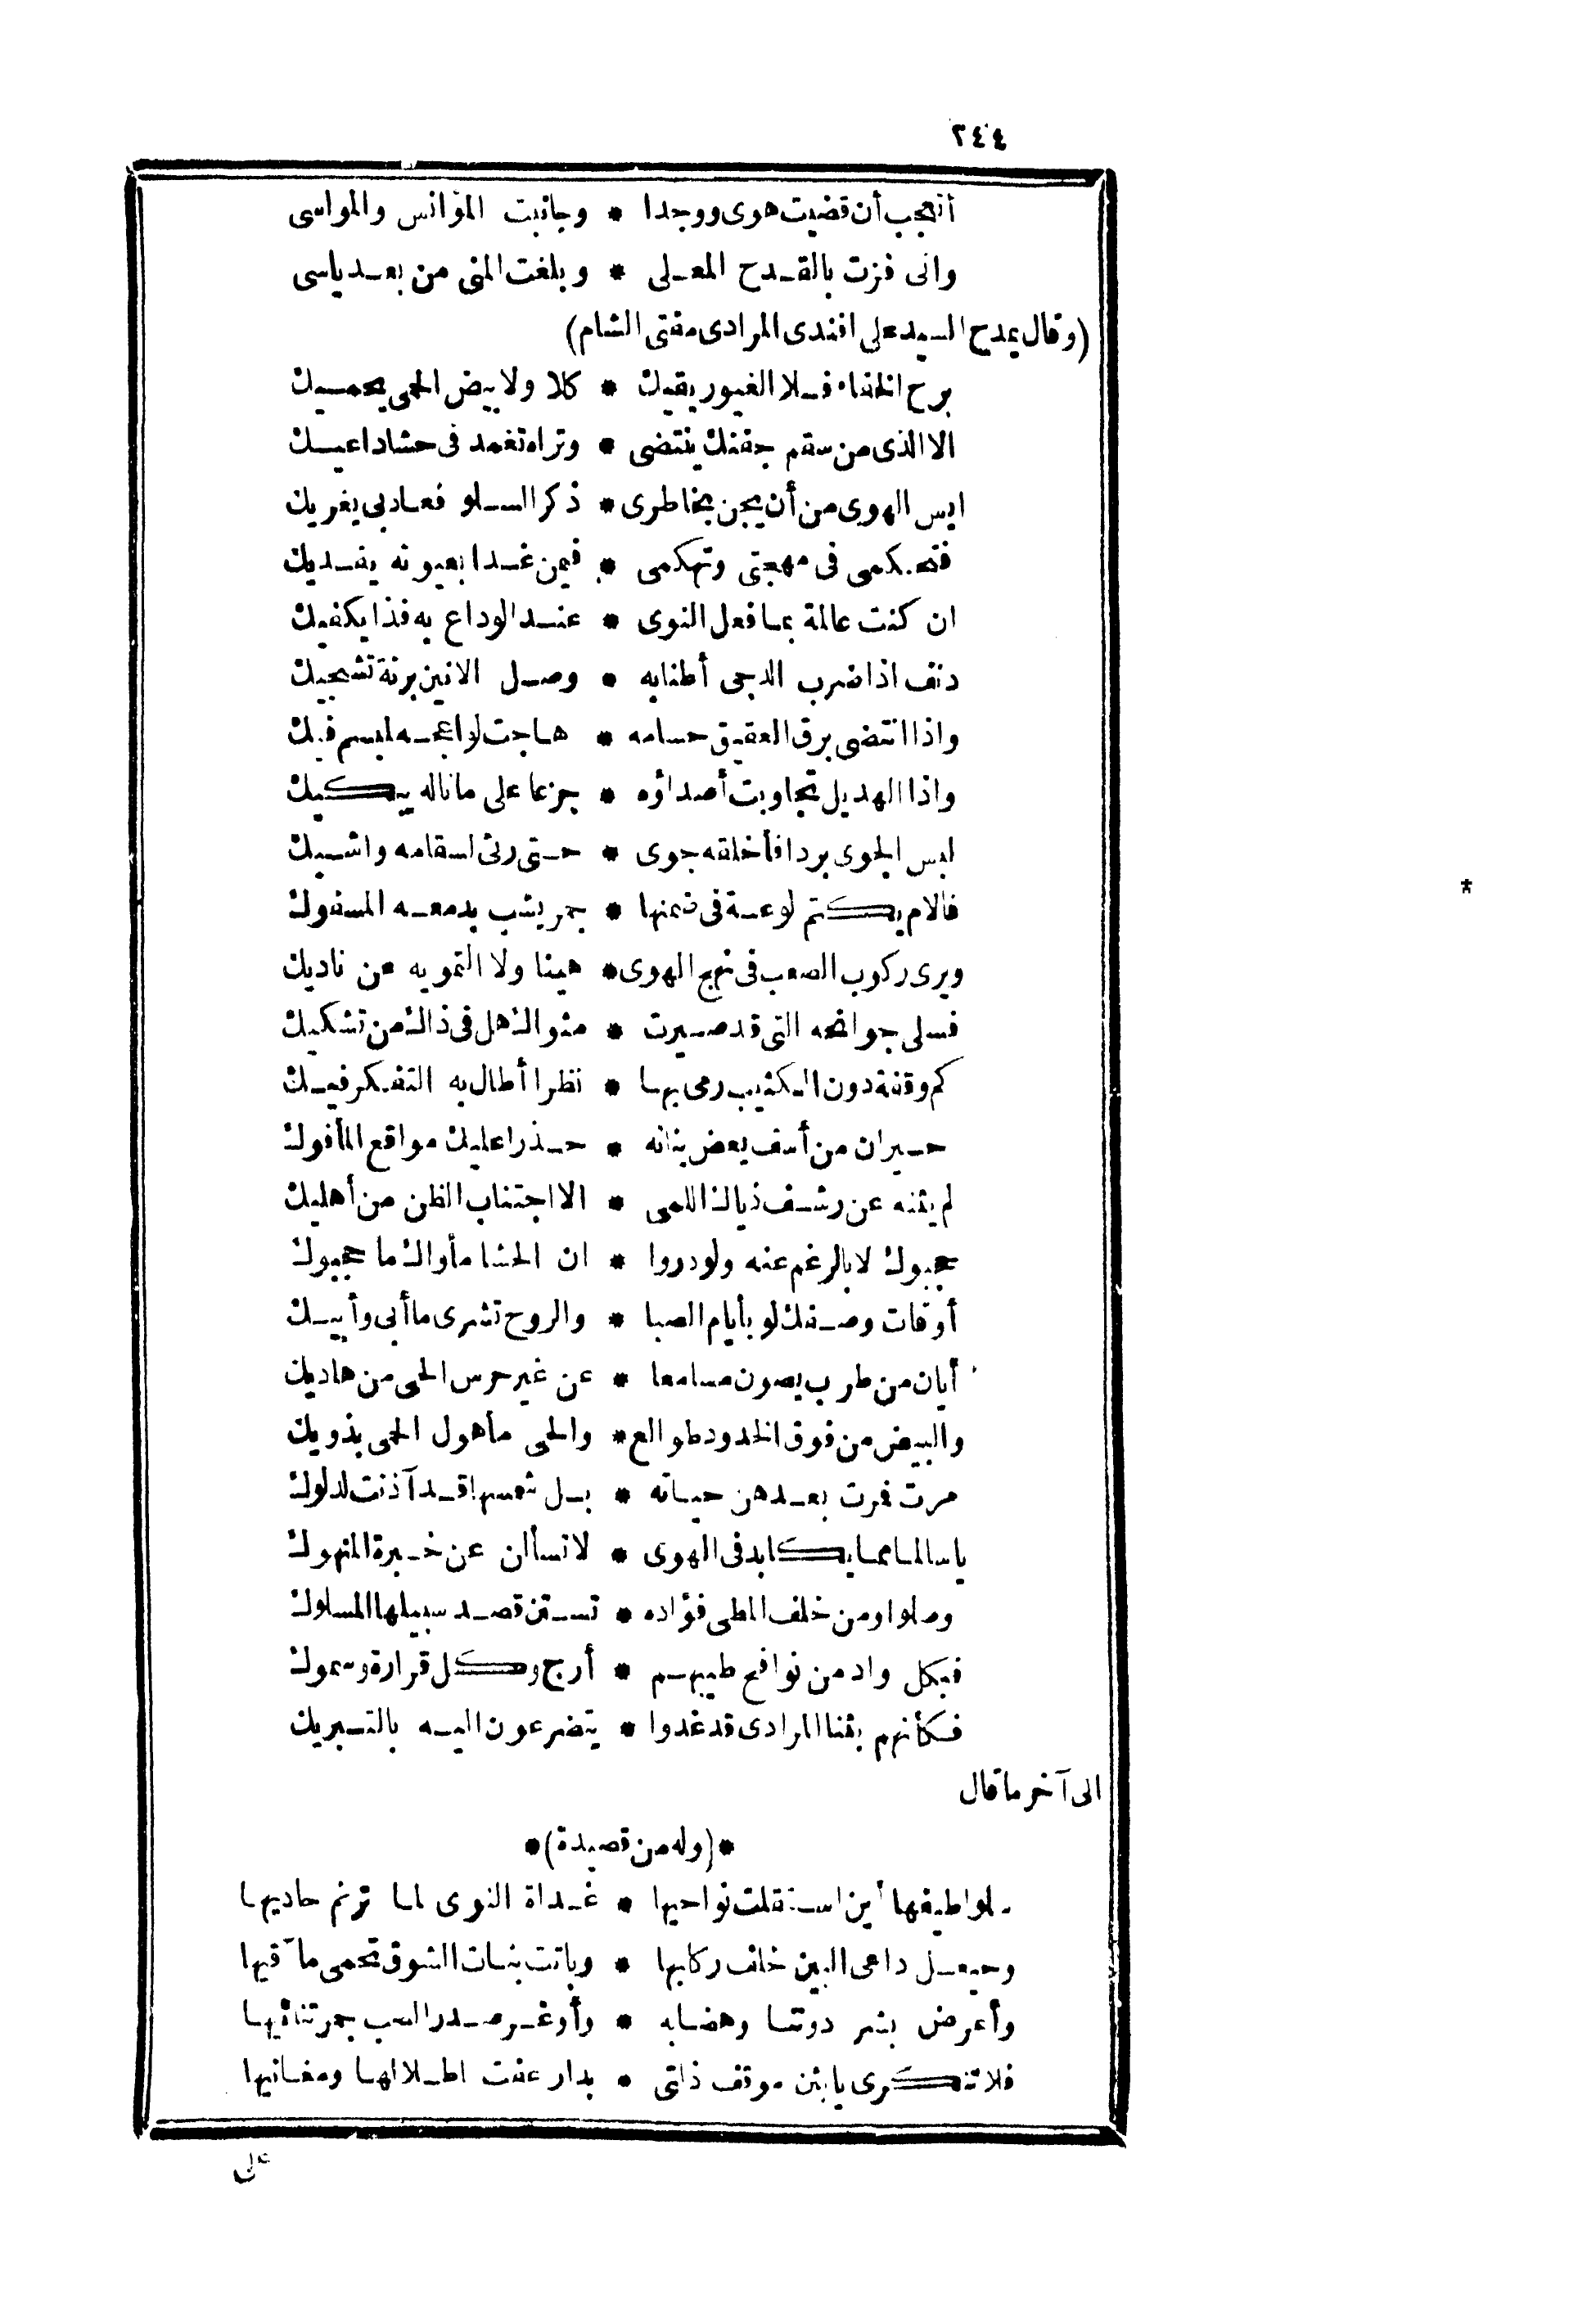 ٢٤٤
أتعجب أن قضيت هوى ووجدا * وجانبت المؤانس والمواسى
وانى فزت بالقدح المعلى * وبلغت المنى من بعد ياسى
(وقال يمدح السيد على افندى المرادى مفتى الشام)
برح الخفاء فلا الغيور يقيك * كلا ولا بيض الحمى يحميك
الا الذى من سقم جفنك ينتضى * وتراه تغمد فى حشا داعيك
ايس الهوى من أن يجن بخاطرى * ذكر السلو فعاد بى يغريك
فتحكمى فى مهجتى وتهكمى * فيمن غدا بعيونه يفديك
ان كنت عالمة بما فعل النوى * عند الوداع به فذا يكفيك
دنف اذا ضرب الدجى أطنابه * وصل الانين برنة تشجيك
واذا انتضى برق العقيق حسامه * هاجت لواعجه لمبسم فيك
واذا الهديل تجاوبت أصداؤه * جزعا على ما ناله يبكيك
لبس الجوى بردا فأخلقه جوى * حتى رثى اسقامه واشيك
فالام يكتم لوعة فى ضمنها * جمر يشب بدمعه المسفوك
ويرى ركوب الصعب فى نهج الهوى * هينا ولا التمويه عن ناديك
فسلى جوانحه التى قد صيرت * مثواك هل فى ذاك من تشكيك
كم وقفة دون الكثيب رمى بها * نظرا أطال به التفكر فيك
حيران من أسف يعض بنانه * حذرا عليك مواقع المأفوك
لم يثنه عن رشف ذياك اللمى * الا اجتناب الظن من أهليك
حجبوك لا بالرغم عنه ولو دروا * ان الحشا مأواك ما حجبوك
أوقات وصفك لو بأيام الصبا * والروح تشرى ما أبى وأبيك
أيان من طرب يصون مسامعا * عن غير حرس الحى من هاديك
والبيض من فوق الخدود طوالع * والحى مأهول الحمى بذويك
مرت فمرت بعدهن حياته * بل شمسها قد آذنت لدلوك
يا سالما مما يكابد فى الهوى * لا تسألن عن خبرة المنهوك
وصلوا ومن خلف المطى فؤاده * تستن قصد سبيلها المسلوك
فبكل واد من نوافح طيبهم * أرج وكل قرارة وسموك
فكأنهم بثنا المرادى قد غدوا * يتضرعون اليه بالتبريك
الى آخر ما قال
*(وله من قصيدة)*
سلوا طيفها أين استقلت نواحيها * غداة النوى لما ترنم حاديها
وحيعل داعى البين خلف ركابها * وباتت بنات الشوق تحمى مآقيها
وأعرض بشر دوننا وهضابه * وأوغر صدر الصب جمر تنائيها
فلا تنكرى يا بثن موقف ذلتى * بدار عفت اطلالها ومغانيها
على